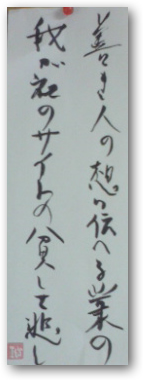 善き人の想ひ伝へる業の
我が社のサイトの貧して悲し